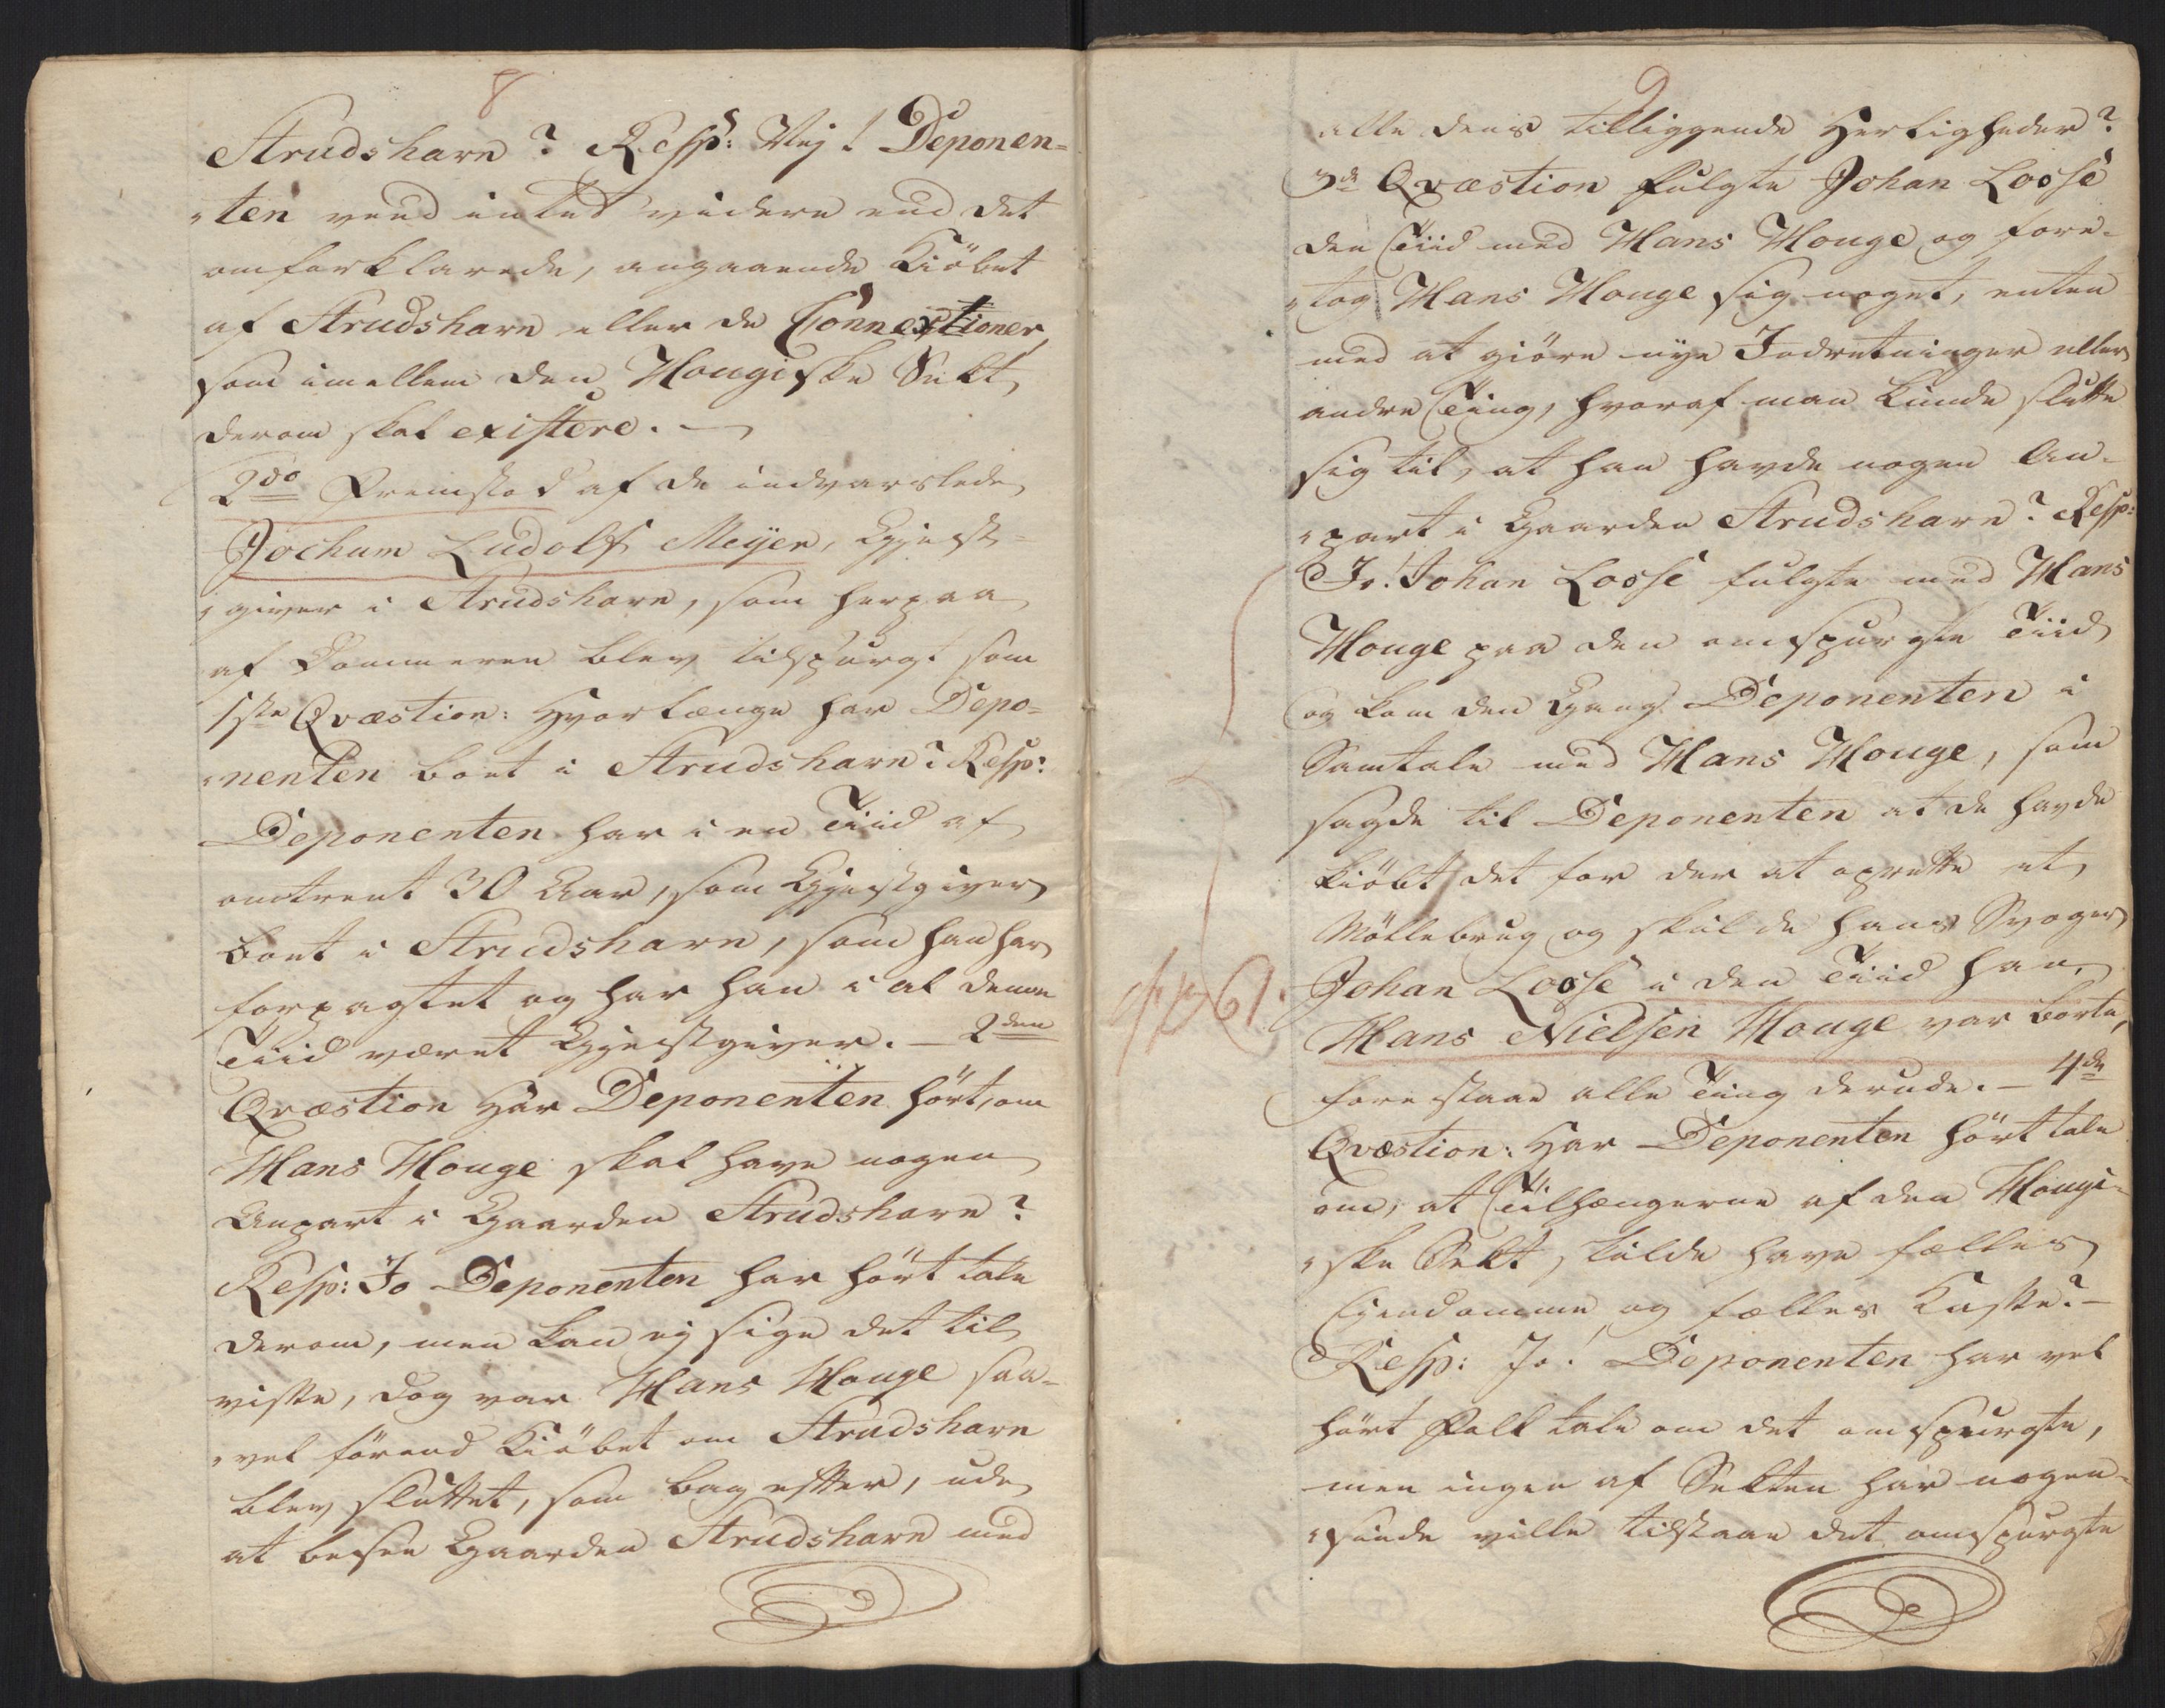 8
Strudshavn? Resp: Nej! Deponen-
„ten veed intet videre end det
omforklarede, angaaende Kiöbet
af Strudshavn eller de Connextioner,
som imellem den Hougiske Sekt,
derom skal existere. —
2do Fremstod af de indvarslede
Jochum Ludolf Meyer, Gjæst-
„giver i Strudshavn, som herpaa
af Dommeren blev tilspurgt som
1ste Qvæstion: Hvorlænge har Depo-
„nenten boet i Strudshavn? Resp:
Deponenten har i en Tiid af
omtrent 30 Aar, som Gjæstgiver
boet i Strudshavn, som han har
forpagtet og har han i al denne
Tiid været Gjæstgiver. — 2den
Qvæstion Har Deponenten hört, om
Hans Houge skal have nogen
Anpart i Gaarden Strudshavn?
Resp: Jo Deponenten har hört tale
derom, men kan ej sige det til
visse, dog var Hans Houge saa-
„vel förend Kiöbet om Strudshavn
blev sluttet, som bag efter, ude
at besee Gaarden Strudshavn med
9
alle dens tilliggende Herligheder?
3de Qvæstion fulgte Johan Loose
den Tiid med Hans Houge og fore-
„tog Hans Houge sig noget, enten
med at giöre nye Indretninger eller
andre Ting, hvoraf man kunde slutte
sig til, at han havde nogen An-
„part i Gaarden Strudshavn? Resp:
Jo! Johan Loose fulgte med Hans
Houge paa den omspurgte Tiid
og kom den Gang Deponenten i
Samtale med Hans Houge, som
sagde til Deponenten at de havde
kiöbt det for der at oprette et
Möllebrug og skulde hans Svoger
Johan Loose i den Tiid han,
Hans Nielsen Houge var borte,
forestaae alle Ting derude. — 4de
Qvæstion: Har Deponenten hört tale
om, at Tilhængerne af den Hougi-
„ske Sekt, skulde have fælles
Eiendomme og fælles Kasse? —
Resp: Jo! Deponenten har vel
hört Folk tale om det omspurgte,
men ingen af Sekten har nogen-
„sinde ville tilstaae det omspurgte